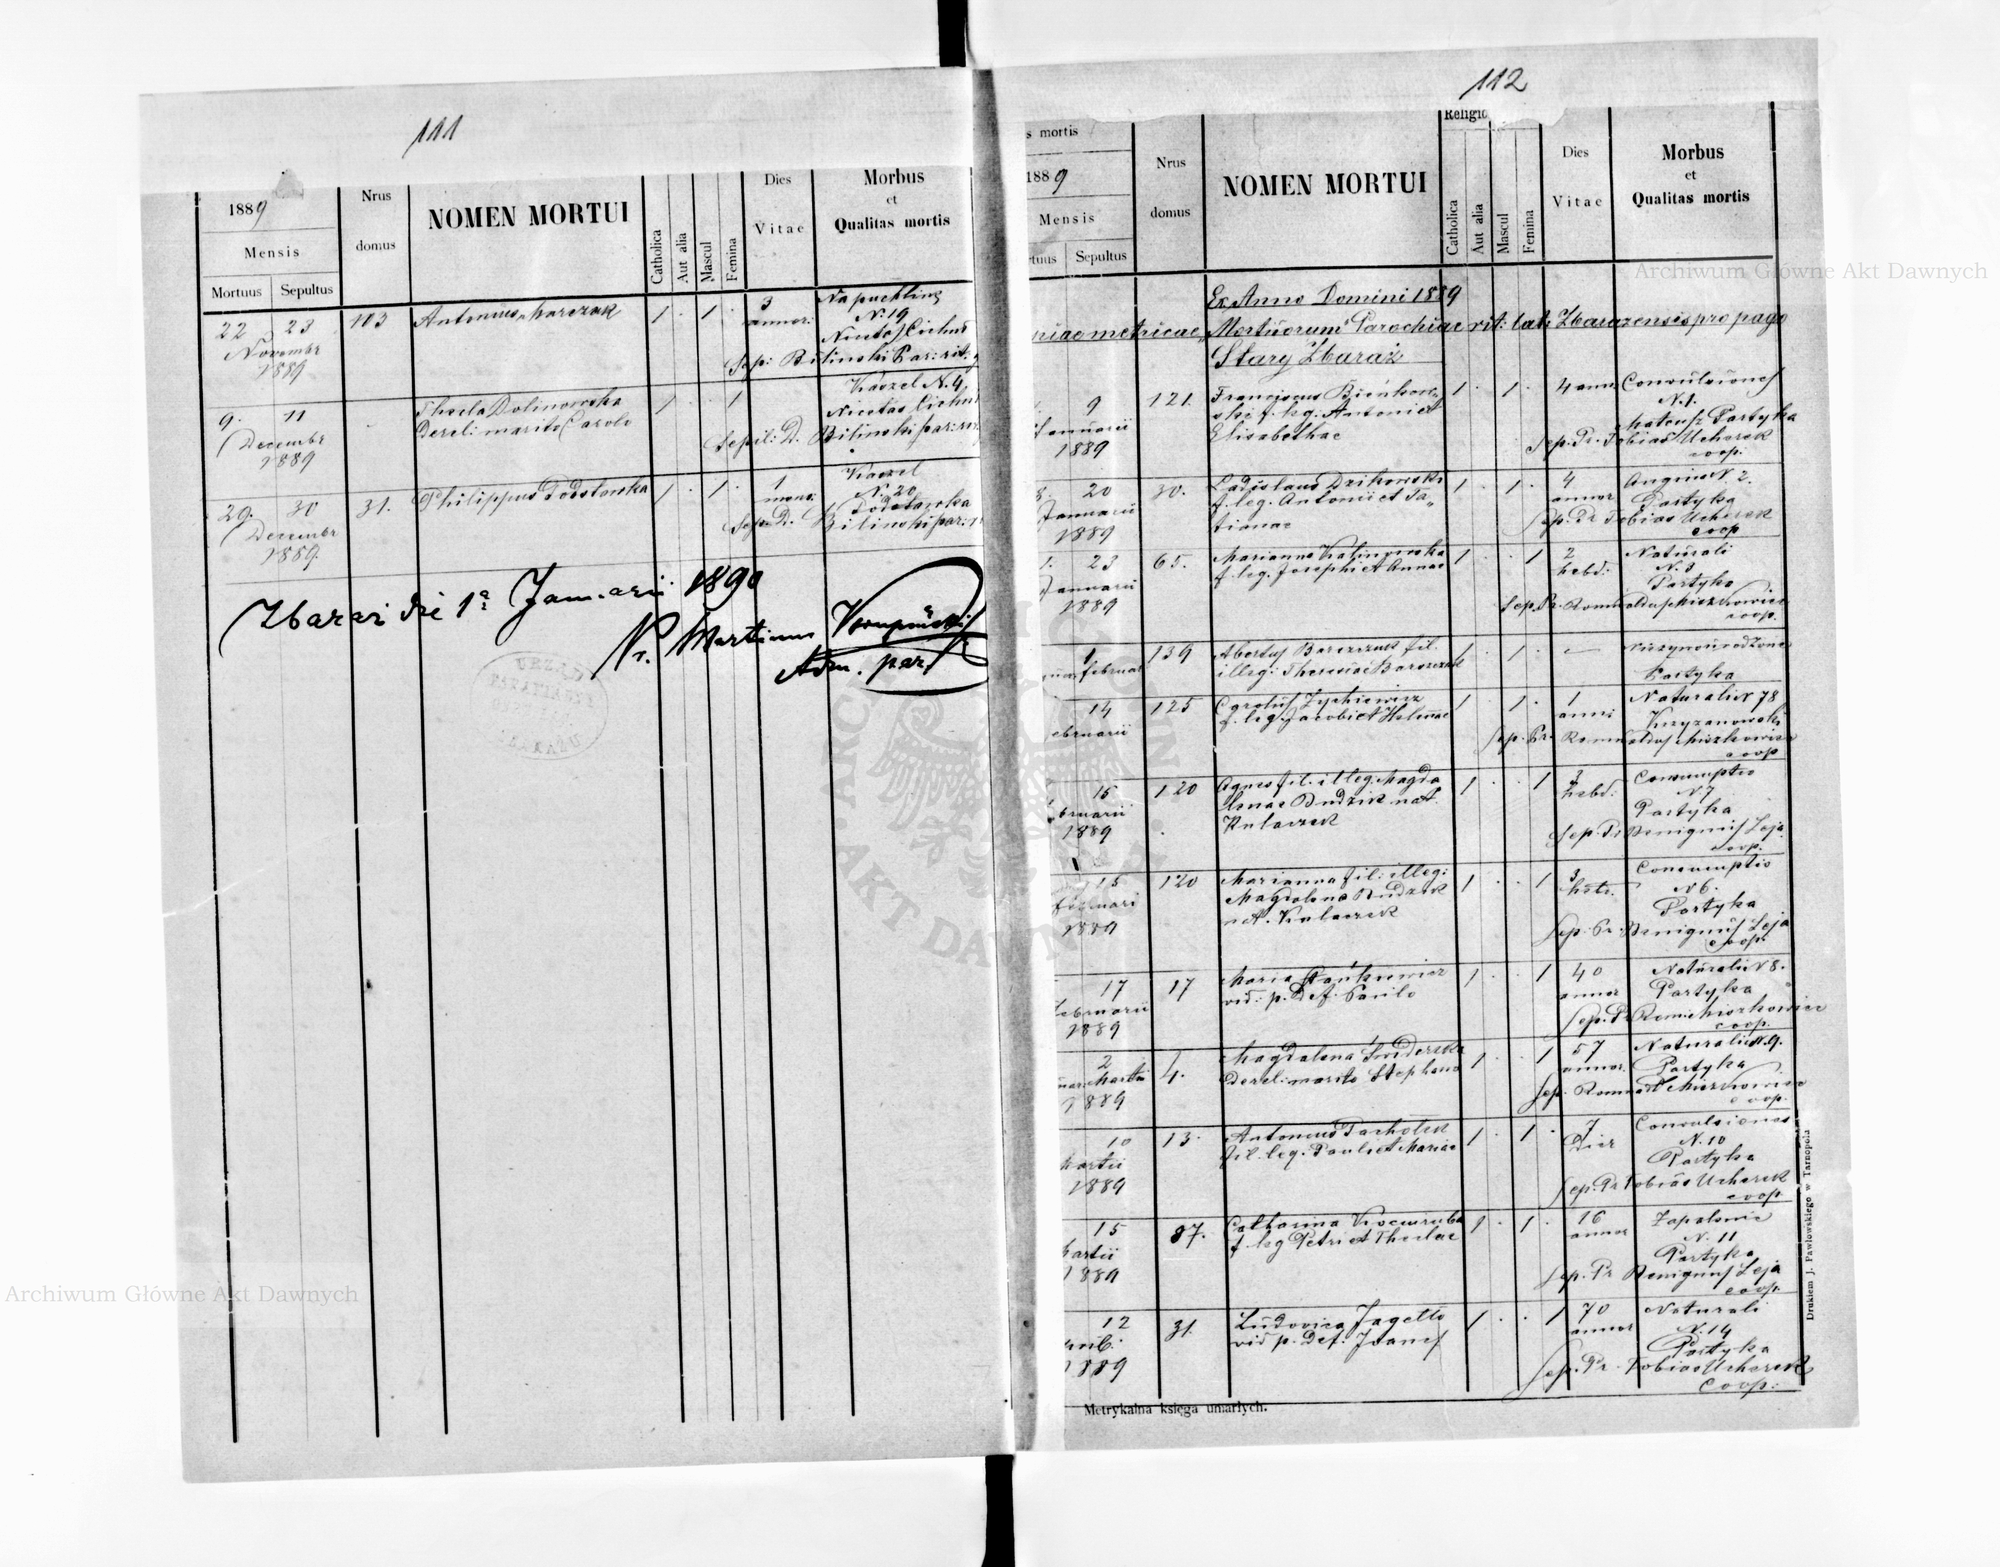 111
1889
Mensis
Mortuus Sepultus
Nrus
domus
NOMEN MORTUI
Catholica
Aut alia
Mascul
Femina
Dies
Vitae
Morbus
et
Qualitas mortis
22 23
Novembr
1889
103
Antonius Marczak
1 . 1 .
3
annor:
Na puchlinę
N. 19
Sep: Biliński Par: rit:
9. 11
Decembr
1889
Thecla Dolinowska
Derel: marito Carolo
1 . . 1
Kaszel N. 4,
Nicolas
Sepil: D. Biliński par:
29. 30
Decembr
1889.
31.
Philippus Podstawka
1 . 1 .
1
mens:
Kaszel
N. 20
Podstawka
Sep. D. Biliński par:
Zbaraż die 1a Januarii 1890
Pr. Martinus
Adm. par.
URZĄD
112
s mortis
1889
Mensis
rtuus Sepultus
Nrus
domus
NOMEN MORTUI
Religio
Catholica
Aut alia
Mascul
Femina
Dies
Vitae
Morbus
et
Qualitas mortis
Ex Anno Domini 1889
niae metricae „Mortuorum" Parochiae rit: lat: Zbarazensis pro pago
Stary Zbaraż
9
Januarii
1889
121.
Franciscus Bieńkow„
ski f. leg. Antoni et
Elisabethae
1 . 1 .
4 ann.
Convulsiones
N. 1.
Mateusz Partyka
Sep. Pr. Tobias Ucherek
coop.
20
Januarii
1889
30.
Ladislaus Dzikowski
f. leg. Antonii et Ta„
tianae
1 . 1 .
4
annor
Angina N. 2.
Partyka
Sep. Pr Tobias Ucherek
coop
23
Januarii
1889
65.
Marianna Kalinowska
f. leg. Josephi et Annae
1 . . 1
2
hebd:
Naturali
N. 3
Partyka
Sep. Pr. Romualdus Mieszkowicz
coop.
1
februar
139
Albertus Barszczuk fil.
illeg: Theresiae Barszczuk
1 . 1 .
—
nieżywo urodzone
Partyka
14
ebruarii
125
Zyskiewicz
f. leg. Jacobi et Helenae
1 . 1 .
1
anni
Naturali N 78
Krzyzanowski
Sep. Pr. Romualdus Mieszkowicz
coop
15
bruarii
1889
120
Agnes fil. illeg. Magda
lenae Dudzik nat
Kulaczek
1 . . 1
3
hebd:
Consumptio
N. 7
Partyka
Sep. Pr Benignus Leja
coop.
15
februari
1889
120
Marianna fil: illeg:
Magdalena Dudzik
nat. Kulaczek
1 . . 1
3
Consumptio
N 6.
Partyka
Sep. Pr. Benignus Leja
coop.
17
Februarii
1889
17
Maria Stankiewicz
vid: p. Def. Paulo
1 . . 1
40
annor
Naturali N 8.
Partyka
Sep. Pr Rom. Mieszkowicz
coop.
2
Martii
1889
4.
Magdalena Swiderska
Derel: marito Stephano
1 . . 1
57
annor.
Naturali N. 9.
Partyka
Sep. Romuald Mieszkowicz
coop.
10
Martii
1889
13.
Antonius Pacholek
fil. leg. Pauli et Mariae
1 . 1 .
7
Dier
Convulsiones
N. 10
Partyka
Sep. Pr Tobias Ucherek
coop
15
Martii
1889
87.
Catharina Kocuruba
f. leg Petri et Theclae
1 . 1 .
16
annor
Zapalenie
N. 11
Partyka
Sep. Pr Benignus Leja
coop.
12
1889
31.
Ludovica Jagello
vid p. Def. Joanes
1 . . 1
70
annor
Naturali
N. 14
Partyka
Sep. Pr. Tobias Ucherek
Coop.
Metrykalna księga umarłych.
Drukiem J. Pawłowskiego w Tarnopolu
Archiwum Główne Akt Dawnych
Archiwum Główne Akt Dawnych